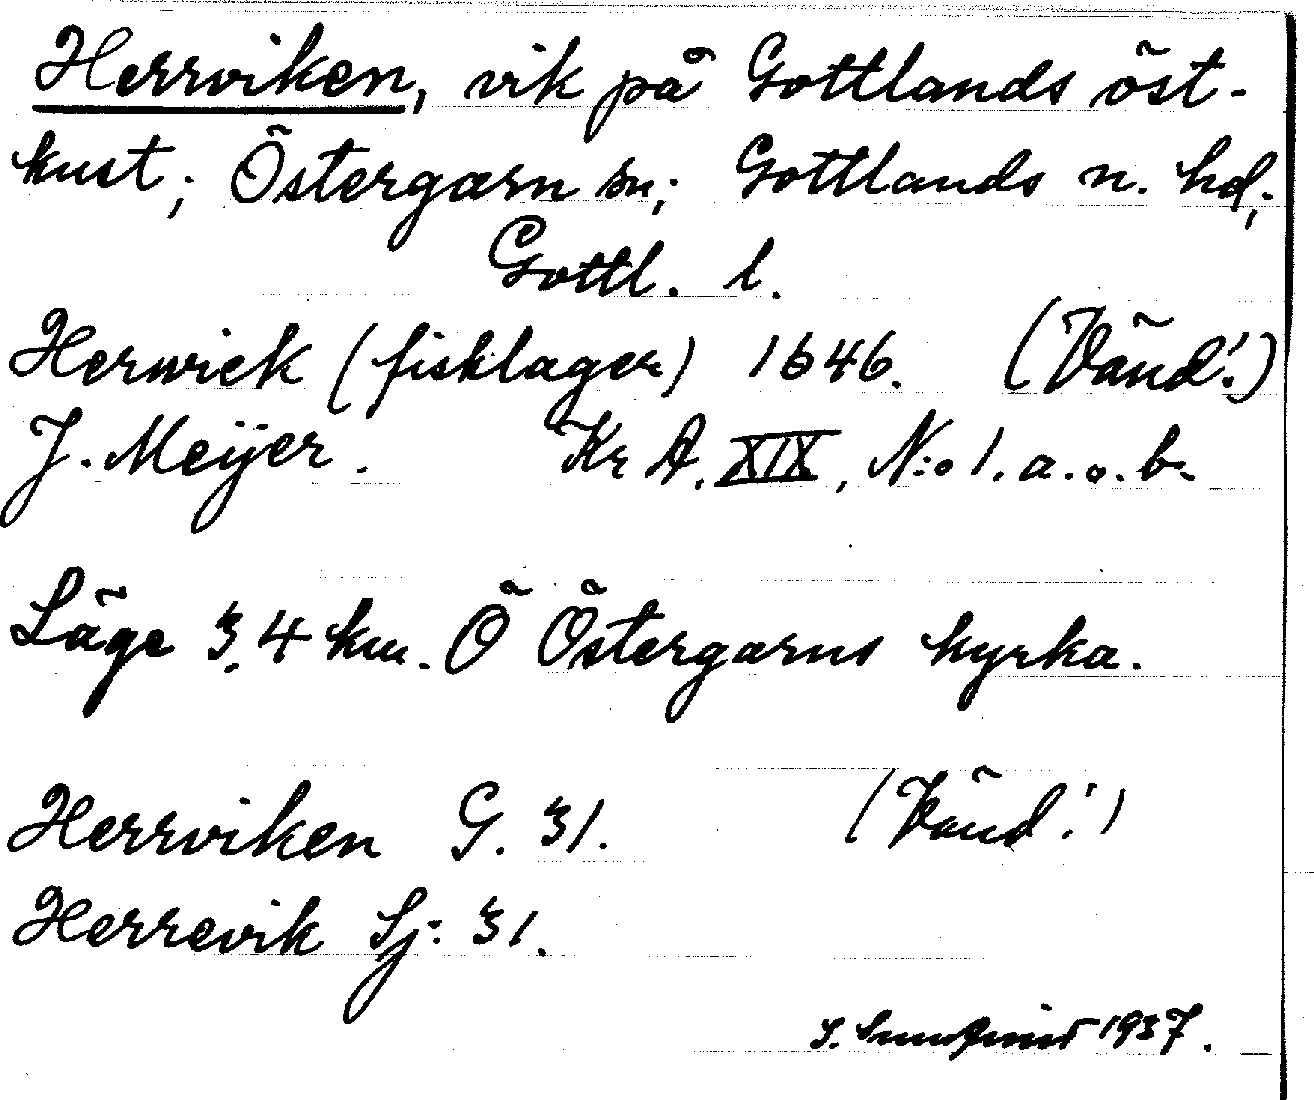 Herrviken, vik på Gottlands öst-
kust; Östergarn sn; Gottlands n. hd;
Gottl. l.
Herwiek (fisklager) 1646. (Vänd!)
J. Meijer. Kr A. XIX, N:o 1. a. o. b.
Läge 3,4 km. Ö Östergarns kyrka.
Herrviken G. 31. (Vänd!)
Herrevik Sj: 31.
1937.